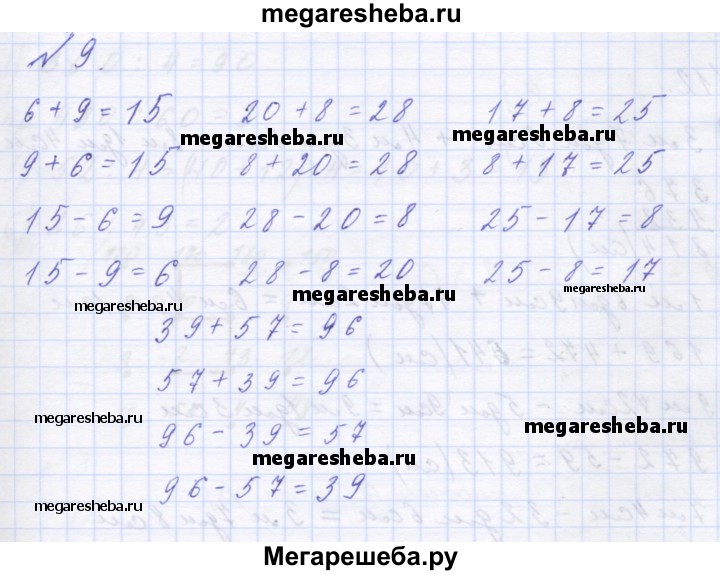 megaresheba.ru
№ 9
6 + 9 = 15 20 + 8 = 28 17 + 8 = 25
megaresheba.ru megaresheba.ru
9 + 6 = 15 8 + 20 = 28 8 + 17 = 25
15 - 6 = 9 28 - 20 = 8 25 - 17 = 8
15 - 9 = 6 28 - 8 = 20 25 - 8 = 17
megaresheba.ru megaresheba.ru megaresheba.ru
39 + 57 = 96
57 + 39 = 96
megaresheba.ru megaresheba.ru
96 - 39 = 57
megaresheba.ru
96 - 57 = 39
megaresheba.ru
Мегарешеба.ру